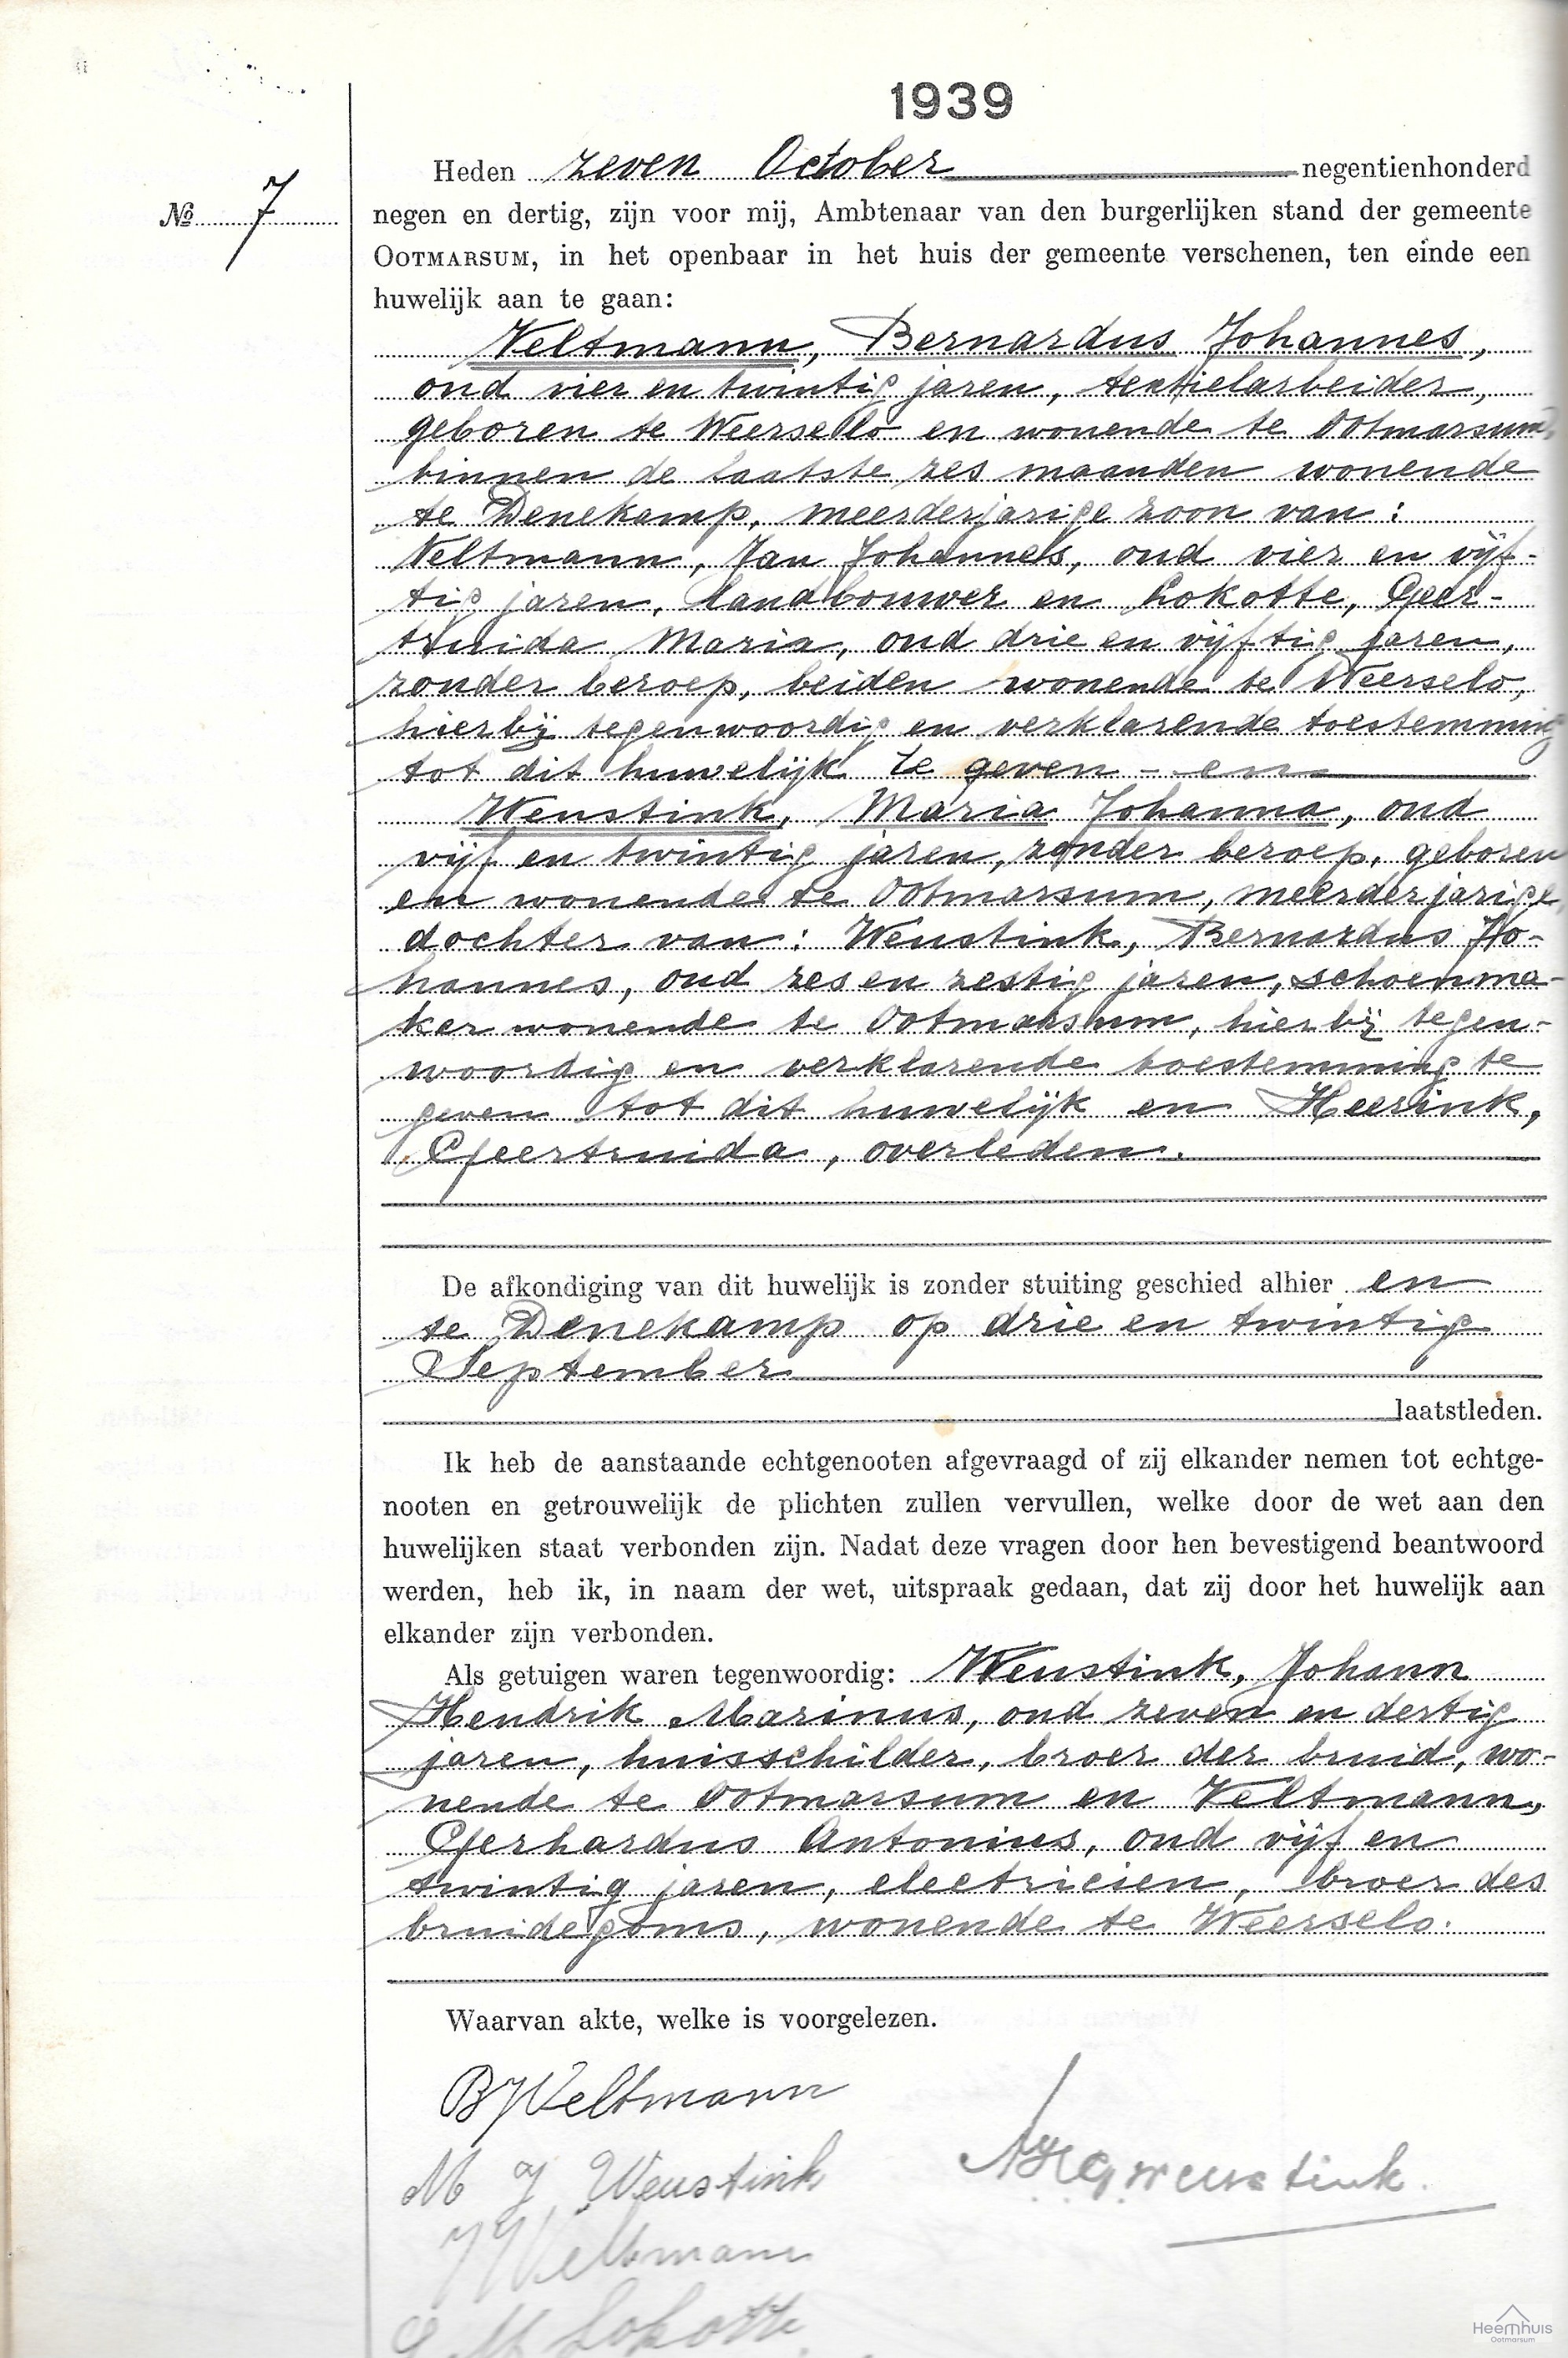 1939
Heden zeven October negentienhonderd
No 7
negen en dertig, zijn voor mij, Ambtenaar van den burgerlijken stand der gemeente
OOTMARSUM, in het openbaar in het huis der gemeente verschenen, ten einde een
huwelijk aan te gaan:
Veltmann, Bernardus Johannes,
oud vier en twintig jaren, textielarbeider,
geboren te Weerselo en wonende te Ootmarsum,
binnen de laatste zes maanden wonende
te Denekamp, meerderjarige zoon van:
Veltmann, Jan Johannes, oud vier en vijf-
tig jaren, landbouwer en Lokotte, Geer-
truida Maria, oud drie en vijftig jaren,
zonder beroep, beiden wonende te Weerselo,
hierbij tegenwoordig en verklarende toestemming
tot dit huwelijk te geven - en
Weustink, Maria Johanna, oud
vijf en twintig jaren, zonder beroep, geboren
en wonende te Ootmarsum, meerderjarige
dochter van: Weustink, Bernardus Jo-
hannes, oud zes en zestig jaren, schoenma-
ker wonende te Ootmarsum, hierbij tegen-
woordig en verklarende toestemming te
geven tot dit huwelijk en Heerink,
Geertruida, overleden.
De afkondiging van dit huwelijk is zonder stuiting geschied alhier en
te Denekamp op drie en twintig
September
laatstleden.
Ik heb de aanstaande echtgenooten afgevraagd of zij elkander nemen tot echtge-
nooten en getrouwelijk de plichten zullen vervullen, welke door de wet aan den
huwelijken staat verbonden zijn. Nadat deze vragen door hen bevestigend beantwoord
werden, heb ik, in naam der wet, uitspraak gedaan, dat zij door het huwelijk aan
elkander zijn verbonden.
Als getuigen waren tegenwoordig: Weustink, Johann
Hendrik Marinus, oud zeven en dertig
jaren, huisschilder, broer der bruid, wo-
nende te Ootmarsum en Veltmann,
Gerhardus Antonius, oud vijf en
twintig jaren, electricien, broer des
bruidegoms, wonende te Weerselo.
Waarvan akte, welke is voorgelezen.
BJVeltmann
M J Weustink
Weustink.
JVeltmann
G M Lokotte
Heemhuis
Ootmarsum